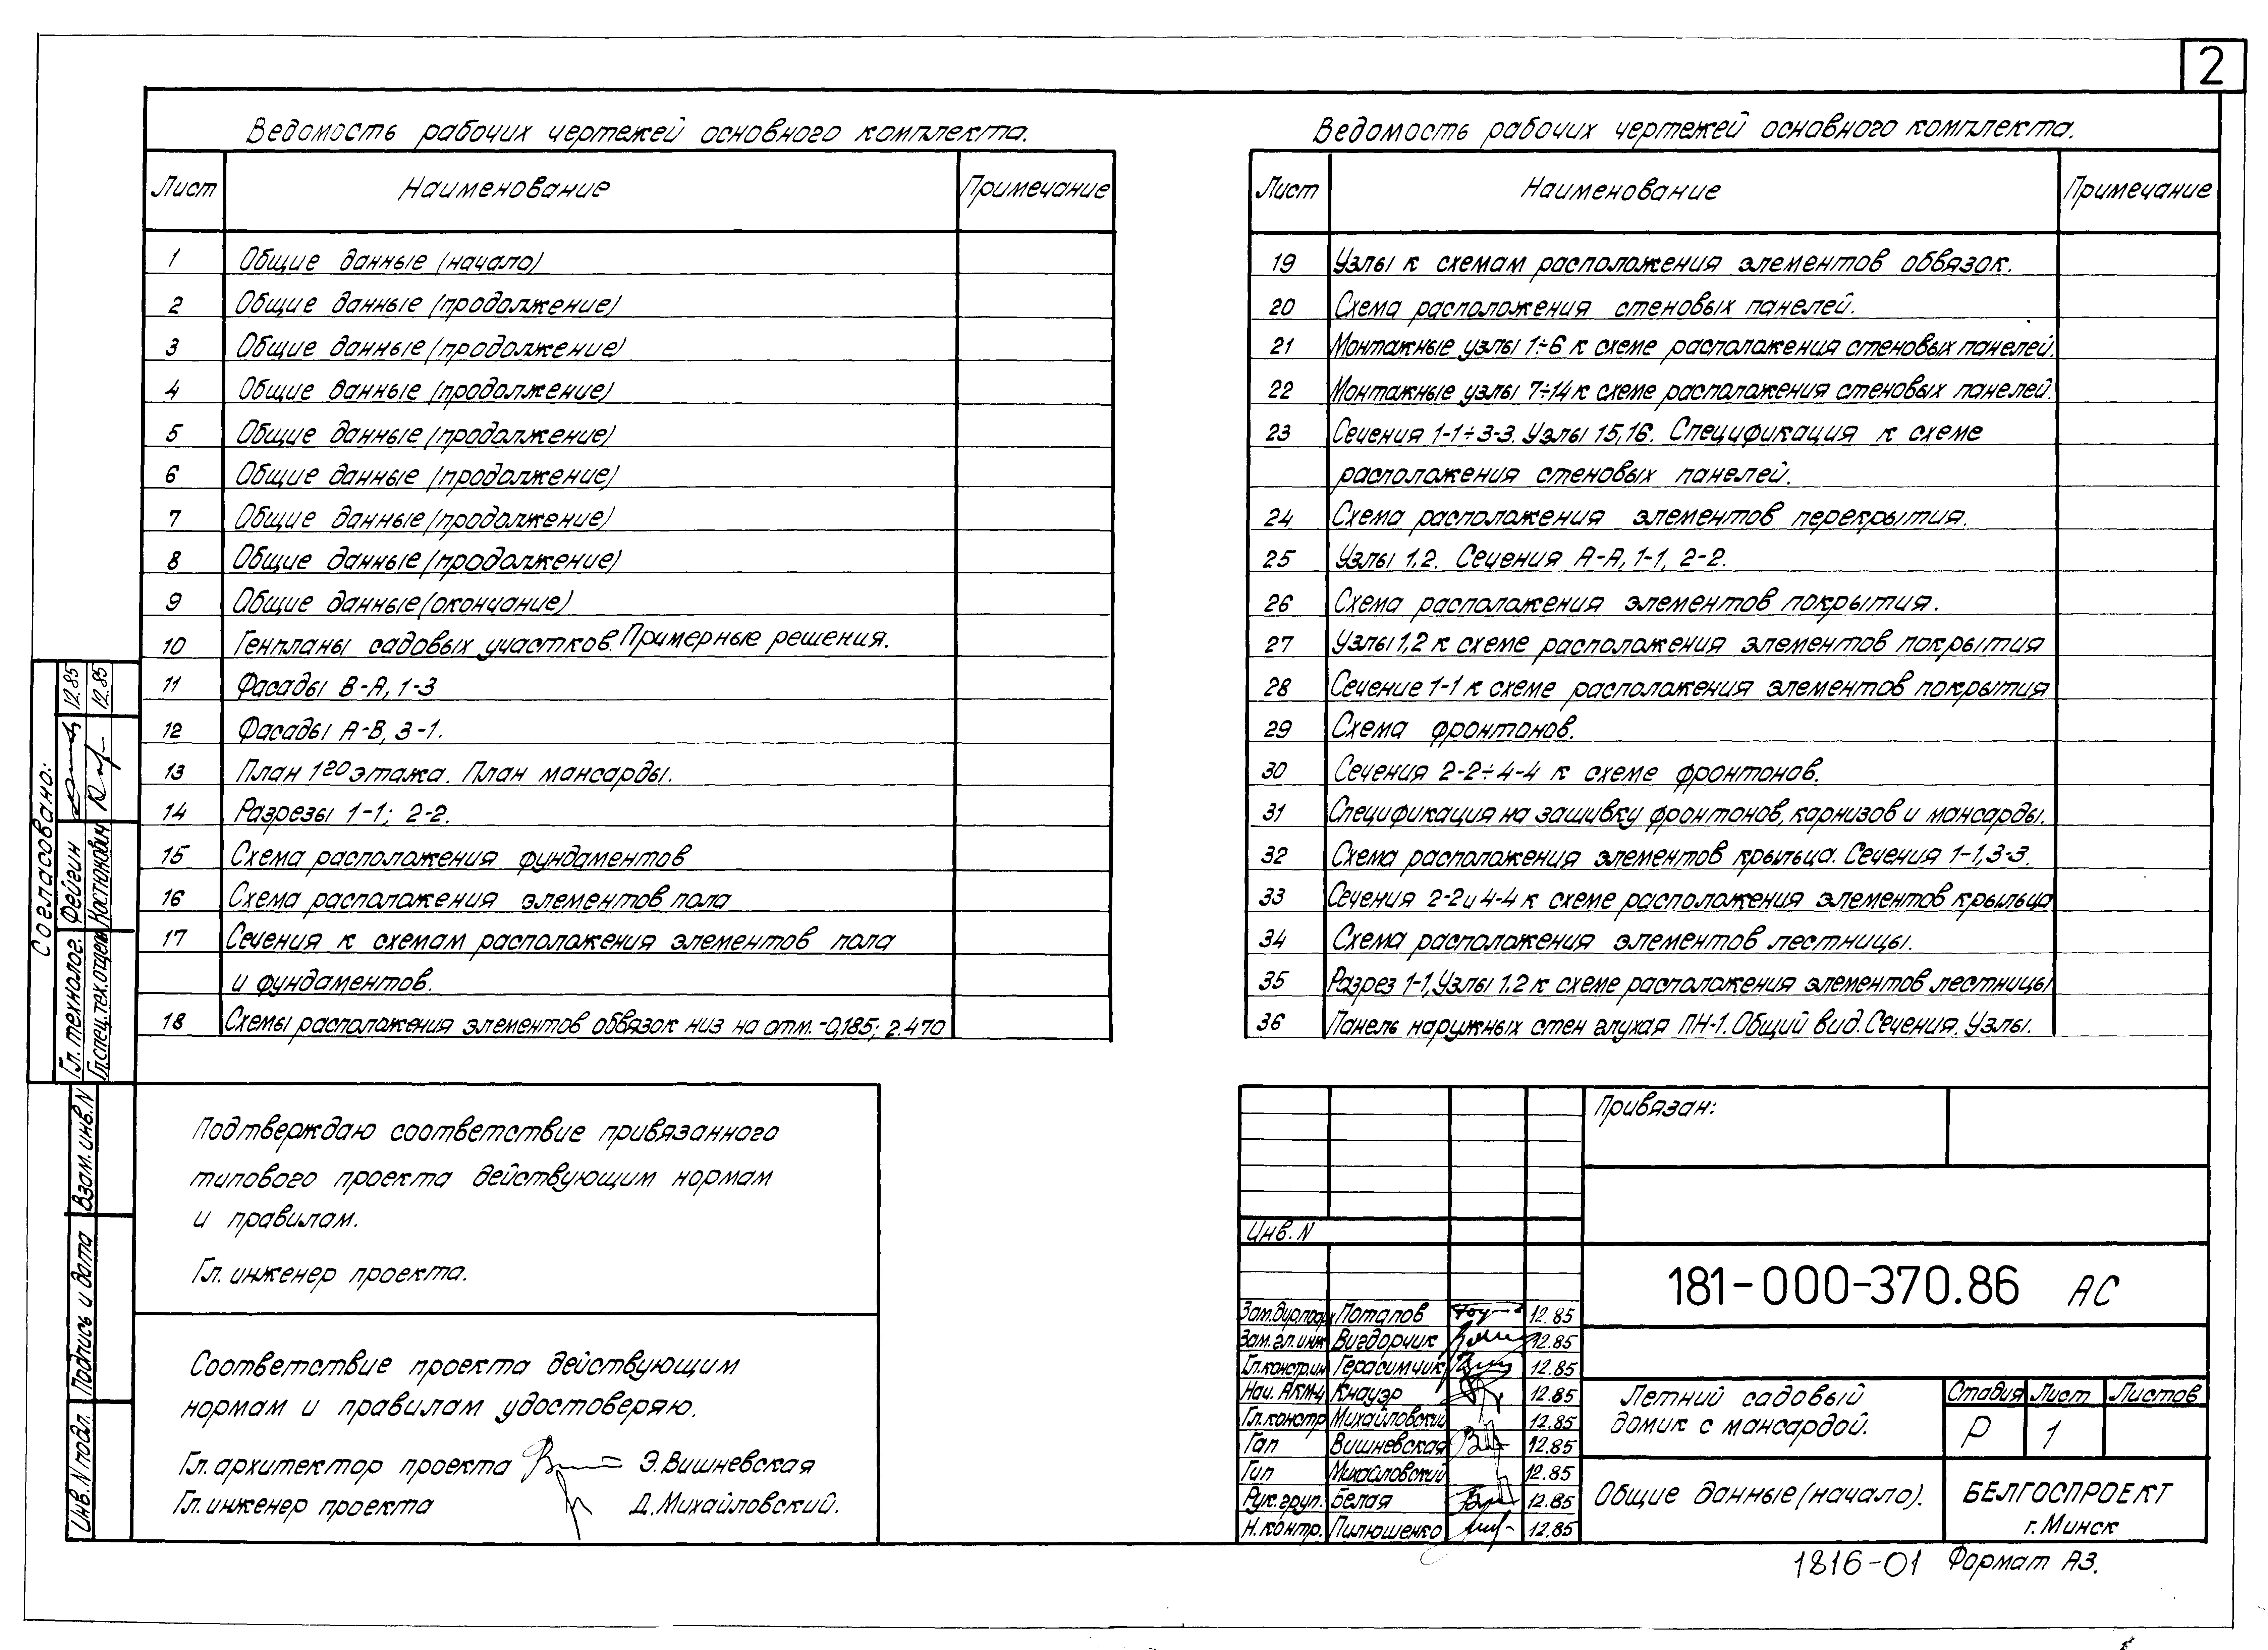 2
Ведомость рабочих чертежей основного комплекта.
Лист Наименование Примечание
1 Общие данные (начало)
2 Общие данные (продолжение)
3 Общие данные (продолжение)
4 Общие данные (продолжение)
5 Общие данные (продолжение)
6 Общие данные (продолжение)
7 Общие данные (продолжение)
8 Общие данные (продолжение)
9 Общие данные (окончание)
10 Генпланы садовых участков. Примерные решения.
11 Фасады В-А, 1-3
12 Фасады А-В, 3-1.
13 План 1го этажа. План мансарды.
14 Разрезы 1-1; 2-2.
15 Схема расположения фундаментов
16 Схема расположения элементов пола
17 Сечения к схемам расположения элементов пола
и фундаментов.
18 Схемы расположения элементов обвязок низ на отм. -0,185; 2.470
Ведомость рабочих чертежей основного комплекта.
Лист Наименование Примечание
19 Узлы к схемам расположения элементов обвязок.
20 Схема расположения стеновых панелей.
21 Монтажные узлы 1÷6 к схеме расположения стеновых панелей.
22 Монтажные узлы 7÷14 к схеме расположения стеновых панелей.
23 Сечения 1-1÷3-3. Узлы 15,16. Спецификация к схеме
расположения стеновых панелей.
24 Схема расположения элементов перекрытия.
25 Узлы 1,2. Сечения А-А, 1-1, 2-2.
26 Схема расположения элементов покрытия.
27 Узлы 1,2 к схеме расположения элементов покрытия
28 Сечение 1-1 к схеме расположения элементов покрытия
29 Схема фронтонов.
30 Сечения 2-2÷4-4 к схеме фронтонов.
31 Спецификация на зашивку фронтонов, карнизов и мансарды.
32 Схема расположения элементов крыльца. Сечения 1-1,3-3.
33 Сечения 2-2 и 4-4 к схеме расположения элементов крыльца
34 Схема расположения элементов лестницы.
35 Разрез 1-1, Узлы 1.2 к схеме расположения элементов лестницы
36 Панель наружных стен глухая ПН-1. Общий вид. Сечения. Узлы.
Согласовано:
Гл. технолог. Фейгин 12.85
Гл.спец.тех.отдела Костюкович 12.85
Взам. инв. N
Подпись и дата
Инв. N подл.
Подтверждаю соответствие привязанного
типового проекта действующим нормам
и правилам.
Гл. инженер проекта.
Соответствие проекта действующим
нормам и правилам удостоверяю.
Гл. архитектор проекта Э. Вишневская
Гл. инженер проекта Д. Михайловский.
Привязан:
Инв. N
181-000-370.86 АС
Потапов 12.85
Зам. гл. инж Вигдорчик 12.85
Гл.констр.ин Герасимчик 12.85
Нач. АКМ-4 Кнауэр 12.85
Гл.констр Михайловский 12.85
Гап Вишневская 12.85
Гип Михайловский 12.85
Рук. груп. Белая 12.85
Н. контр. Пилюшенко 12.85
Летний садовый
домик с мансардой.
Стадия Лист Листов
Р 1
Общие данные (начало).
БЕЛГОСПРОЕКТ
г. Минск
1816-01 Формат А3.